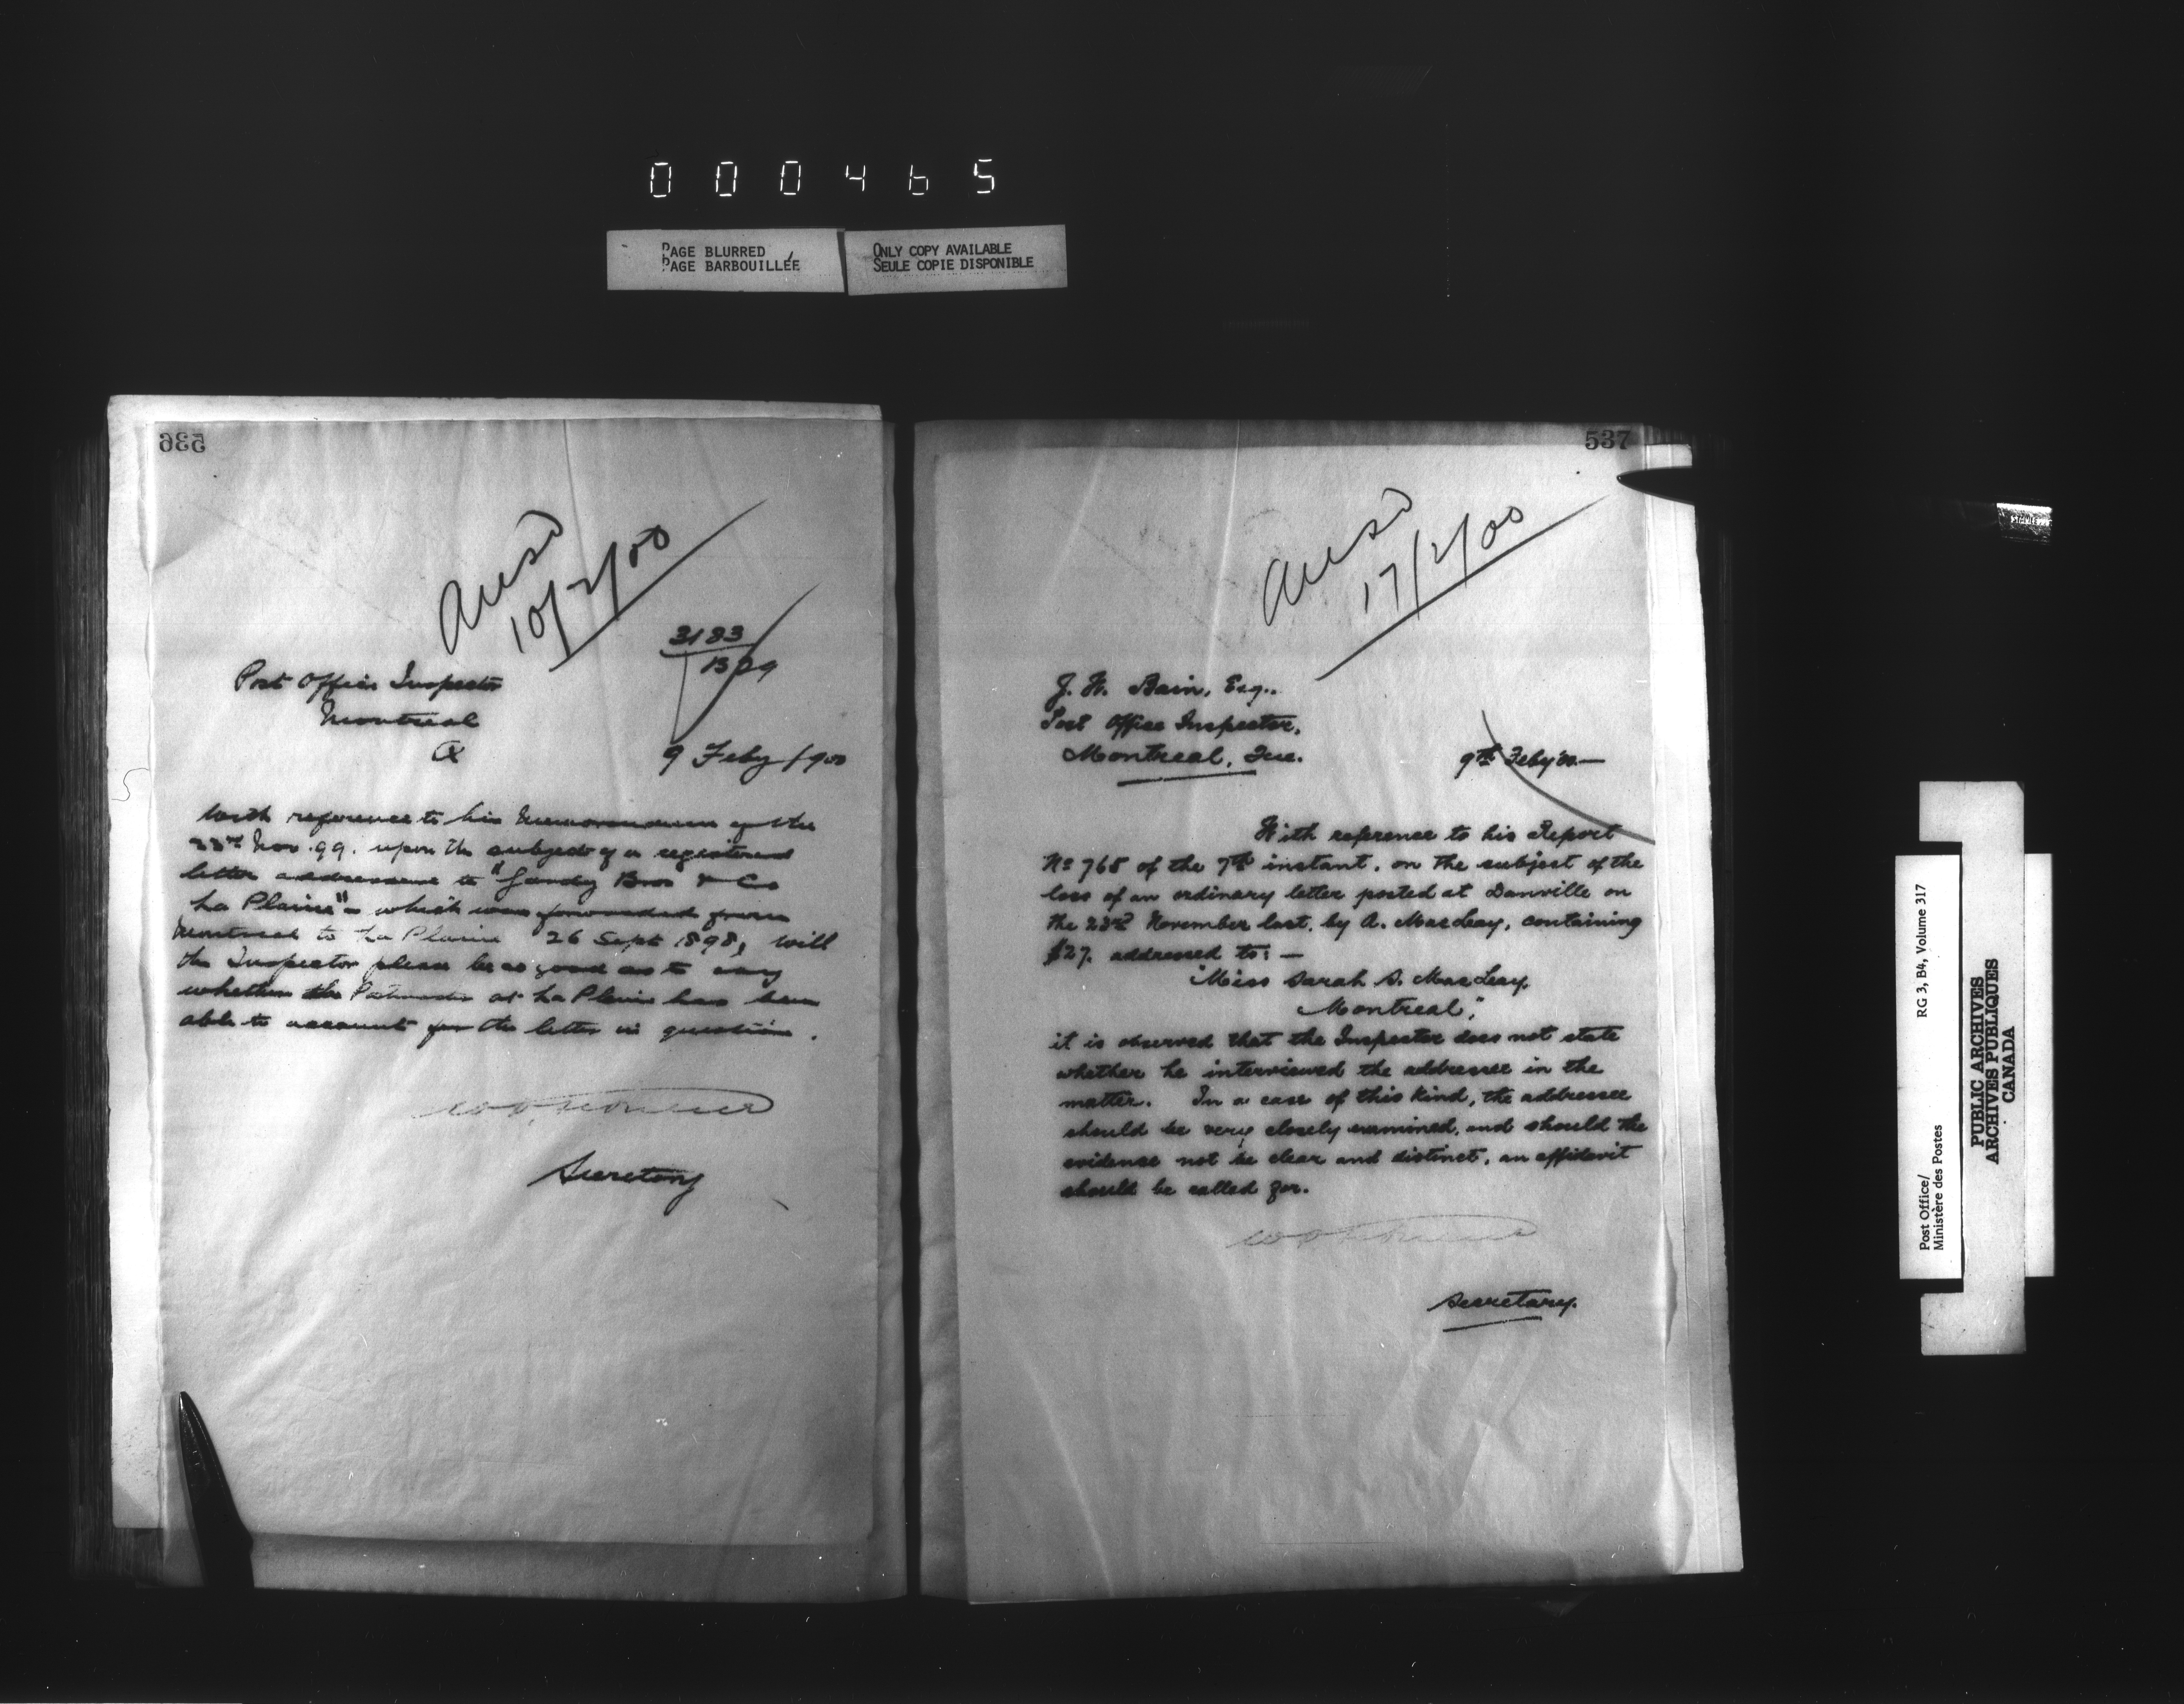 000465
PAGE BLURRED
PAGE BARBOUILLÉE
ONLY COPY AVAILABLE
SEULE COPIE DISPONIBLE
536
Ansd
10/2/00
3183
Post Office Inspector
Montreal
Q
9 Feby 1900
With reference to his Memorandum of the
22nd Nov. 99. upon the subject of a registered
letter addressed to "Gandy Bros & Co
La Plaine" - which was forwarded from
Montreal to La Plaine 26 Sept 1898, will
the Inspector please be so good as to say
whether the Postmaster at La Plaine has been
able to account for the letter in question.
Secretary
537
Ansd
17/2/00
J. H. Bain, Esq.,
Post Office Inspector,
Montreal, Que.
9th Feby '00.—
With reference to his Report
No 768 of the 7th instant, on the subject of the
loss of an ordinary letter posted at Danville on
the 23rd November last, by A. MacLeay, containing
$27. addressed to: —
"Miss Sarah S. MacLeay,
Montreal",
it is observed that the Inspector does not state
whether he interviewed the addressee in the
matter. In a case of this kind, the addressee
should be very closely examined, and should the
evidence not be clear and distinct, an affidavit
should be called for.
Secretary.
Post Office/
Ministère des Postes
RG 3, B4, Volume 317
PUBLIC ARCHIVES
ARCHIVES PUBLIQUES
CANADA